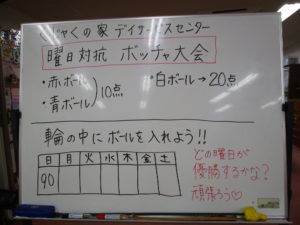 くの家 デイサービスセンター
曜日対抗 ボッチャ大会
・赤ボール
・青ボール
10点
・白ボール→20点
輪の中にボールを入れよう!!
日 月 火 水 木 金 土
90
どの曜日が
優勝するかな?
頑張ろう♡